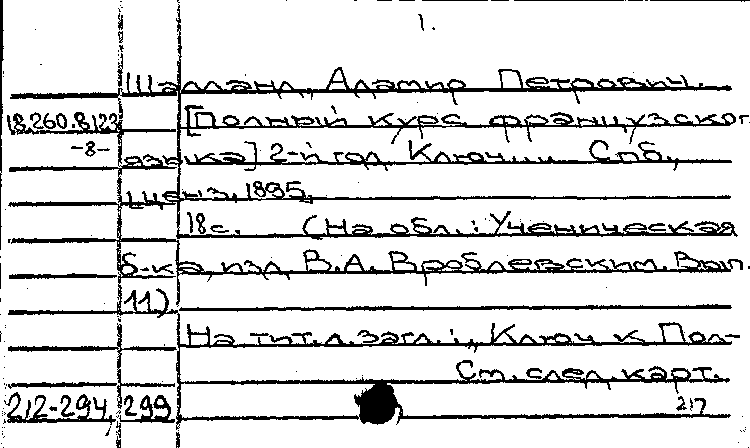 1.
Шалланд, Адамир Петрович.
18.260.8.123 [Полный курс французског
-8- языка] 2-й год. Ключ... Спб.,
ценз. 1895.
18с. (На обл.: Ученическая
б-ка, изд. В.А. Вроблевским. Вып.
11)
На тит.л. загл.: „Ключ к Пол-
См. след. карт.
212-294, 299 217